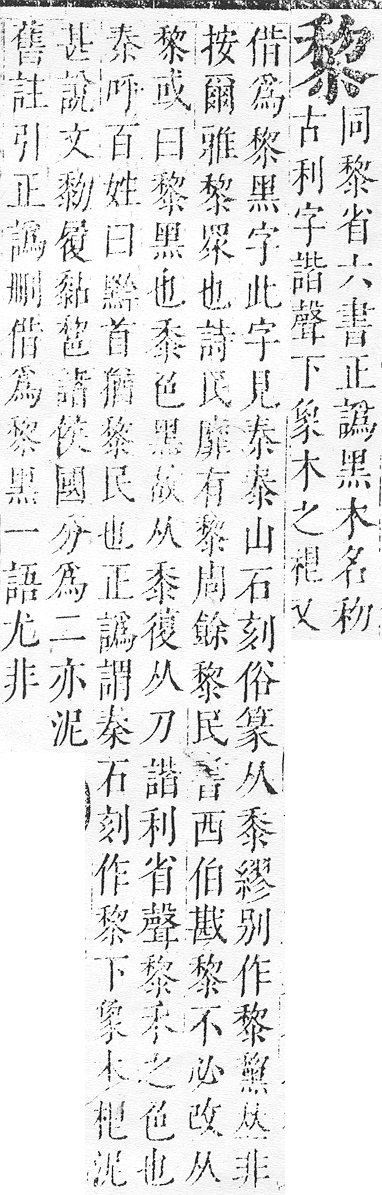 黎
同黎省六書正譌黑木名初
古利字諧聲下象木之柶又
借爲黎黑字此字見秦泰山石刻俗篆从黍繆别作黎䵩丛非
按爾雅黎眾也詩民靡有黎周餘黎民書西伯戡黎不必改从
黎或曰黎黑也黍色黑故从黍復从刀諧利省聲黎禾之色也
秦呼百姓曰黔首猶黎民也正譌謂秦石刻作黎下象木柶泥
甚說文黎履黏𨛫諸侯國分爲二亦泥
舊註引正譌刪借爲黎黑一語尤非